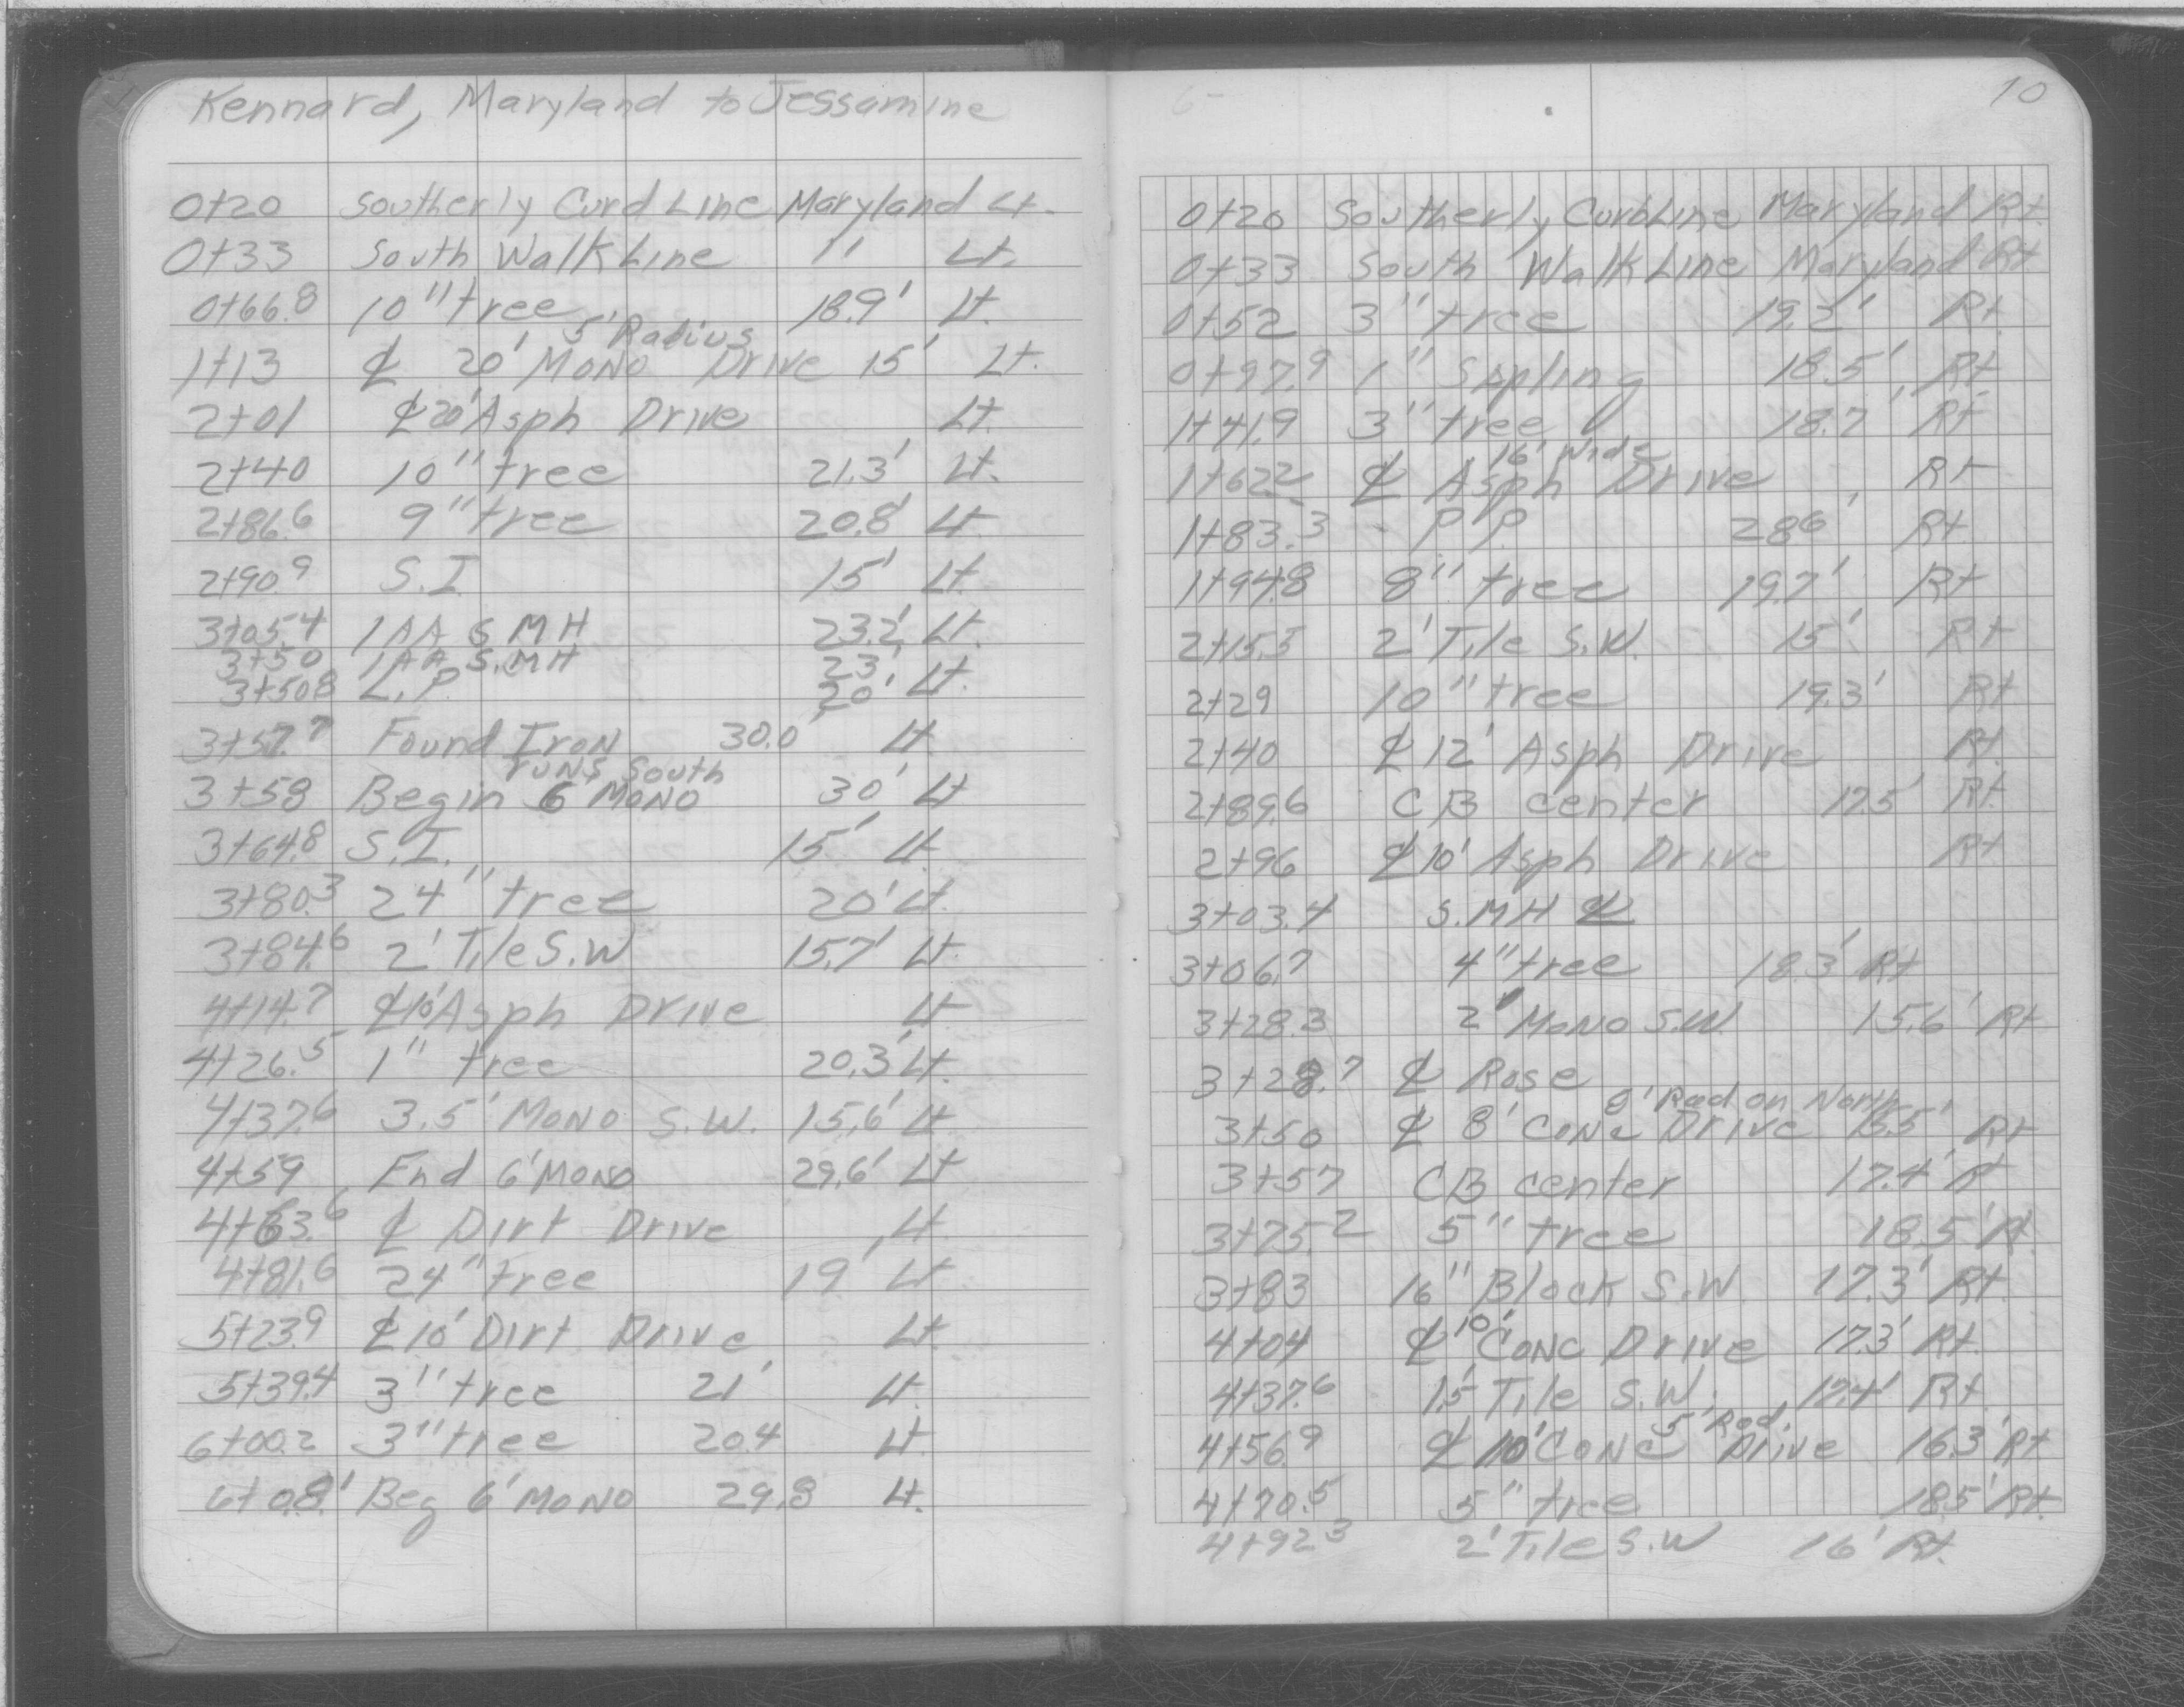 Kennard, Maryland to Jessamine
0+20 Southerly Curb Line Maryland Lt.
0+33 South Walk Line " Lt.
0+66.8 10" tree 18.9' Lt.
5' Radius
1+13 ℄ 20' Mono Drive 15' Lt.
2+01 ℄ 20' Asph Drive Lt.
2+40 10" tree 21.3' Lt.
2+86.6 9" tree 20.8' Lt.
2+90.9 S.I. 15' Lt.
3+05.4 1AA S MH 23.2' Lt.
3+50 1AA S.MH 23'
3+50.8 L.P. 20' Lt.
3+57.7 Found Iron 30.0' Lt.
runs South
3+58 Begin 6' Mono 30' Lt
3+64.8 S.I. 15' Lt
3+80.3 24" tree 20' Lt.
3+84.6 2' Tile S.W 15.7' Lt.
4+14.7 ℄ 10' Asph Drive Lt
4+26.5 1" tree 20.3' Lt.
4+37.6 3.5' Mono S.W. 15.6' Lt
4+59 End 6' Mono 29.6' Lt
4+63.6 ℄ Dirt Drive Lt.
4+81.6 24" tree 19' Lt
5+23.9 ℄ 10' Dirt Drive Lt
5+39.4 3" tree 21' Lt.
6+00.2 3" tree 20.4 Lt.
6+08.1 Beg 6' Mono 29.8 Lt.
10
0+20 Southerly Curb Line Maryland Rt.
0+33 South Walk Line Maryland Rt
0+52 3" tree 19.2' Rt.
0+97.9 1" Sapling 18.5' Rt.
1+41.9 3" tree 18.7' Rt
16' Wide
1+62.2 ℄ Asph Drive Rt
1+83.3 P.P. 28.6' Rt
1+94.8 8" tree 19.7' Rt
2+15.5 2' Tile S.W. 15' Rt
2+29 10" tree 19.3' Rt
2+40 ℄ 12' Asph Drive Rt.
2+89.6 CB center 17.5' Rt.
2+96 ℄ 10' Asph Drive Rt
3+03.4 S.MH ℄
3+06.7 4" tree 18.3' Rt
3+28.3 2' Mono S.W. 15.6' Rt
3+28.7 ℄ Rose
8' Rad on North
3+50 ℄ 8' Conc Drive 15.5' Rt
3+57 CB center 17.4' Rt
3+75.2 5" tree 18.5' Rt
3+83 16" Block S.W. 17.3' Rt.
4+04 ℄ 10' Conc Drive 17.3' Rt.
4+37.6 1.5' Tile S.W. 17.4' Rt.
5' Rad.
4+56.9 ℄ 10' Conc Drive 16.3' Rt
4+70.5 5" tree 18.5' Rt.
4+92.3 2' Tile S.W 16' Rt.